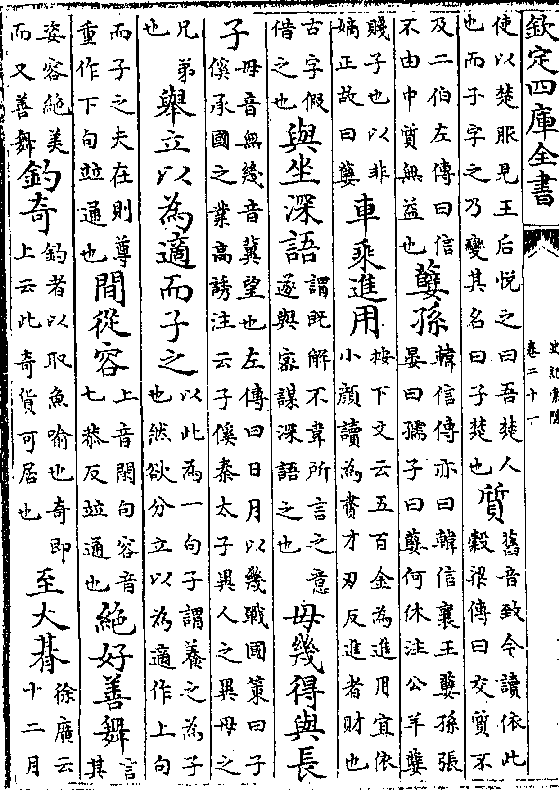 欽定四庫全書
史記索隱
卷二十一
使以楚服見王后悅之曰吾楚人
也而子字之乃變其名曰子楚也
質
舊音致今讀依此
穀梁傳曰交質不
及二伯左傳曰信
不由中質無益也
孽孫
韓信傳亦曰韓信襄王孽孫張
晏曰孺子曰孽何休注公羊孽
賤子也以非
嫡正故曰孽
車乘進用
按下文云五百金為進用宜依
小顏讀為賮才刃反進者財也
古字假
借之也
與坐深語
謂既解不韋所言之意
遂與密謀深語之也
毋幾得與長
子
毋音無幾音冀望也左傳曰日月以幾戰國策曰子
傒承國之業高誘注云子傒秦太子異人之異母之
兄弟
也
舉立以為適而子之
以此為一句子謂養之為子
也然欲分立以為適作上句
而子之夫在則尊
重作下句竝通也
間從容
上音閑句容音
七恭反竝通也
絕好善舞
言
其
姿容絕美
而又善舞
釣奇
釣者以取魚喻也奇即
上云此奇貨可居也
至大朞
徐廣云
十二月